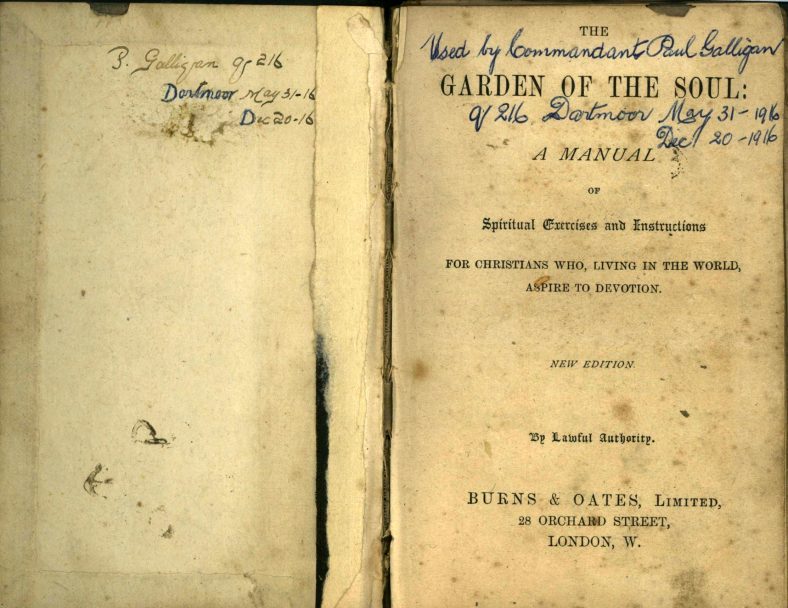 P. Galligan q 216
Dartmoor May 31-16
Dec 20-16
THE
Used by Commandant Paul Galligan
GARDEN OF THE SOUL:
q 216 Dartmoor May 31-1916
Dec 20-1916
A MANUAL
OF
Spiritual Exercises and Instructions
FOR CHRISTIANS WHO, LIVING IN THE WORLD,
ASPIRE TO DEVOTION.
NEW EDITION.
By Lawful Authority.
BURNS & OATES, LIMITED,
28 ORCHARD STREET,
LONDON, W.